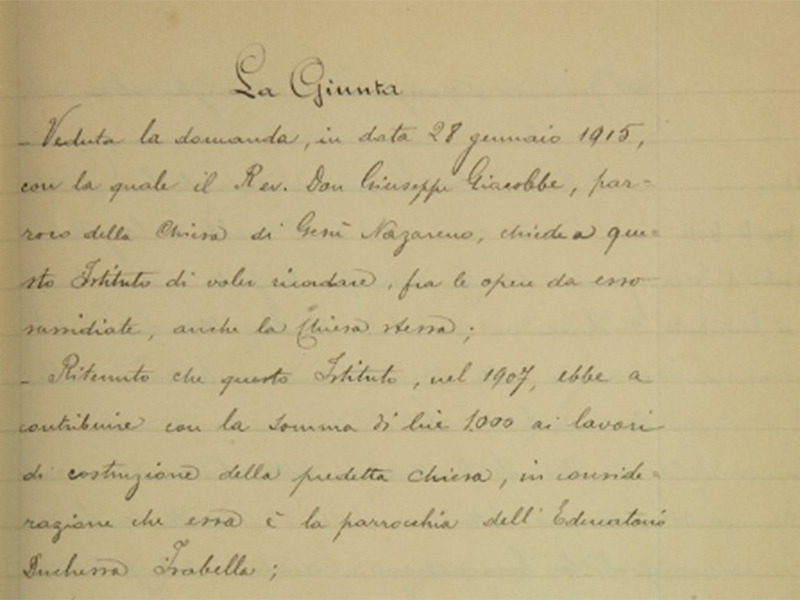 La Giunta
- Veduta la domanda, in data 28 gennaio 1915,
con la quale il Rev. Don Giuseppe Giacobbe, par=
roco della Chiesa di Gesù Nazareno, chiede a que=
sto Istituto di voler ricordare, fra le opere da esso
sussidiate, anche la Chiesa stessa;
- Ritenuto che questo Istituto, nel 1907, ebbe a
contribuire con la somma di lire 1.000 ai lavori
di costruzione della predetta chiesa, in conside=
razione che essa è la parrocchia dell'Educatorio
Duchessa Isabella;